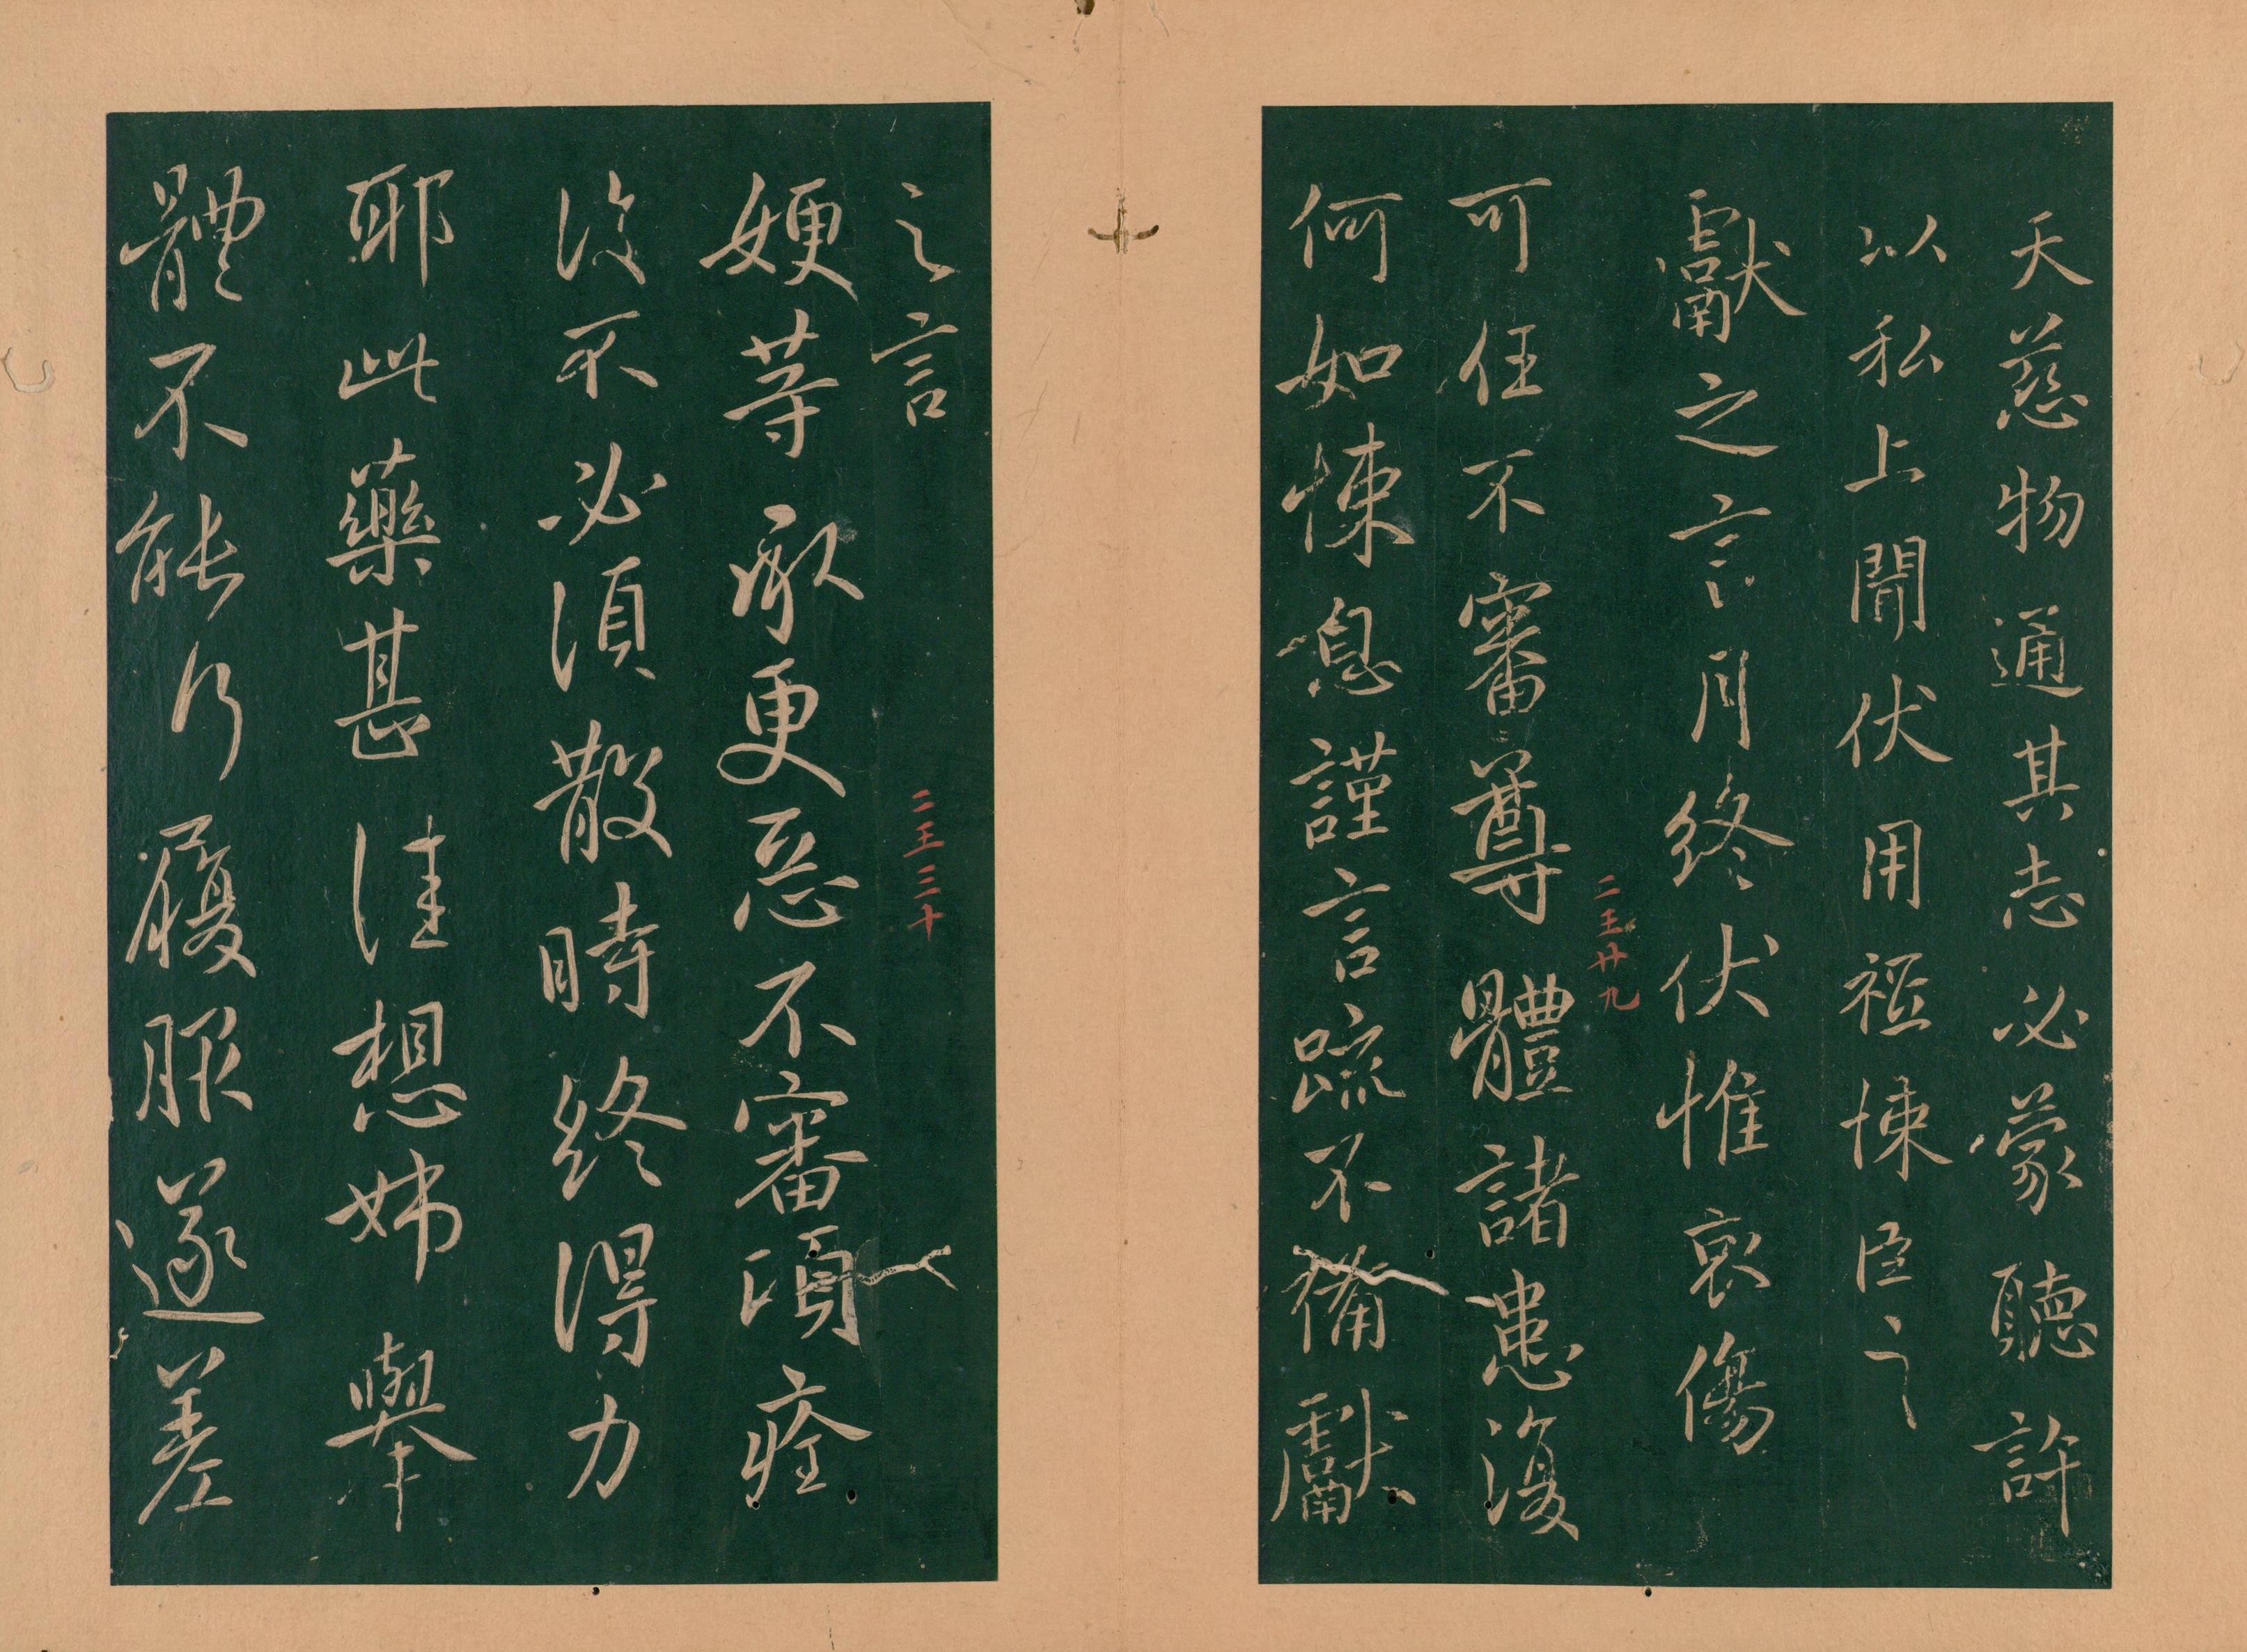 天慈物通其志必蒙聽許
以私上聞伏用祗悚臣之
獻之言月終伏惟哀傷
二王廿九
可任不審尊體諸患復
何如悚息謹言疏不備獻
之言
二王三十
㛐等承更惡不審頃痊
復不必須散時終得力
耶此藥甚佳想姊舉
體不能行履服遂差